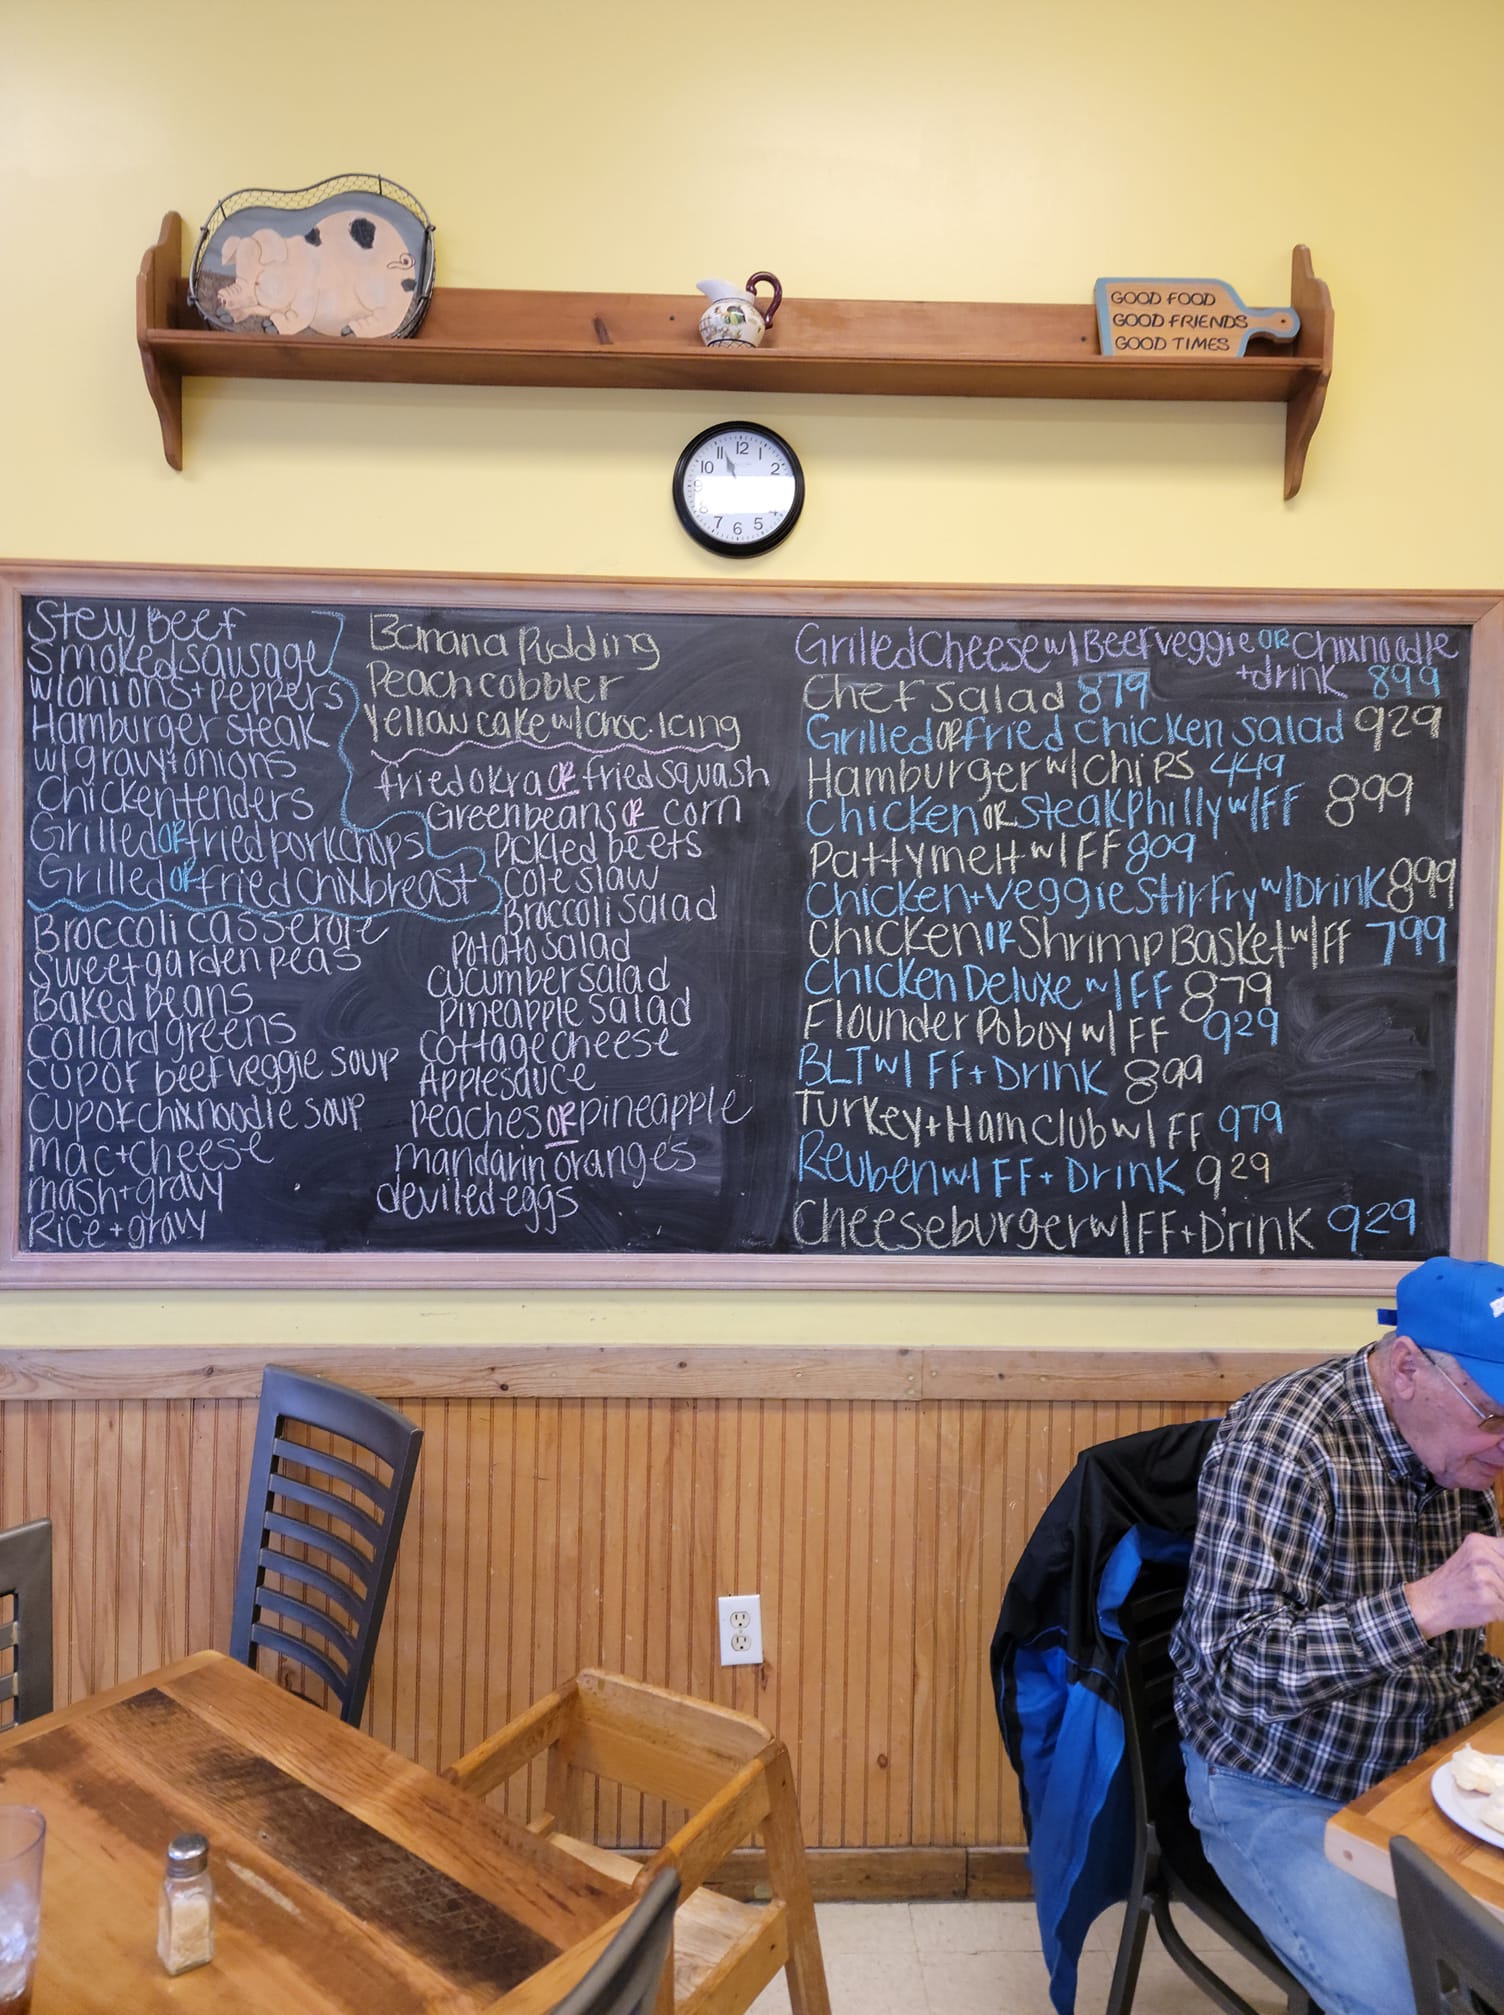 GOOD FOOD
GOOD FRIENDS
GOOD TIMES
11 12 1
10 2
9
8 4
7 6 5
Stew Beef
Smoked sausage
w/onions + peppers
Hamburger steak
w/gravy + onions
Chicken tenders
Grilled OR fried porkchops
Grilled OR fried chix breast
Broccoli casserole
Sweet garden peas
Baked Beans
Collard greens
Cup of beef veggie soup
Cup of chix noodle soup
mac + cheese
mash + gravy
Rice + gravy
Banana Pudding
Peach cobbler
Yellow cake w/choc. Icing
fried okra OR fried squash
Greenbeans OR corn
Pickled beets
cole slaw
Broccoli salad
Potato salad
cucumber salad
pineapple salad
cottage cheese
Applesauce
Peaches OR pineapple
mandarin oranges
deviled eggs
Grilled Cheese w/ Beef veggie OR Chix noodle
+ drink 899
Chef Salad 879
Grilled OR Fried chicken salad 929
Hamburger w/ Chips 449
Chicken OR Steak philly w/ FF 899
Patty melt w/ FF 809
Chicken + veggie Stir Fry w/ Drink 899
Chicken OR Shrimp Basket w/ FF 799
Chicken Deluxe w/ FF 879
Flounder Poboy w/ FF 929
BLT w/ FF + Drink 899
Turkey + Ham club w/ FF 979
Reuben w/ FF + Drink 929
Cheeseburger w/ FF + Drink 929